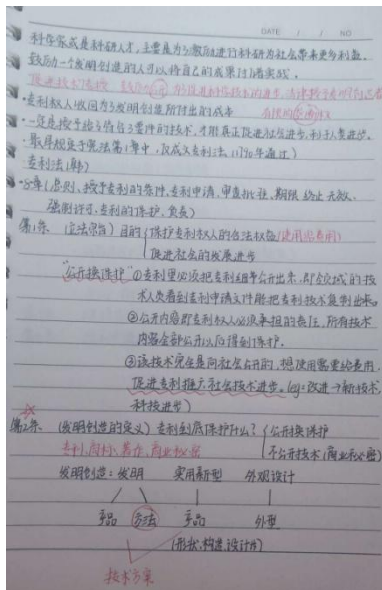 DATE / / NO
科学家或是科研人才，主要是为了激励进行科研为社会带来更多利益。
鼓励一个发明创造的人可以将自己的成果付诸实践。
促进技术
·专利权人收回为了发明创造所付出的成本
·一定是授予给了符合三要件的技术，才能真正促进社会进步，利于人类进步。
·最早规定于宪法第1章中，及成文专利法（1790年通过）
专利法（8章）
·8章（总则、授予专利的条件、专利申请、审查批准、期限 终止 无效、
强制许可、专利的保护、负责）
第1条 （立法宗旨）目的 保护专利权人的合法权益（使用需费用）
促进社会的发展进步
“公开换保护” ①专利里必须把专利细节公开出来，即令领域的技
术人员看到专利申请文件能把专利技术复制出来。
②公开内容即专利权人必须承担的责任，所有技术
内容全部公开以后得到保护。
③该技术完全是向社会公开的，想使用需要给费用，
促进专利推广社会技术进步。（eg：改进→新技术
科技进步）
第2条 （发明创造的定义）专利到底保护什么？ 公开换保护
专利、商标、著作、商业秘密 不公开技术（商业秘密）
发明创造：发明 实用新型 外观设计
产品 方法 产品 外型
（形状、构造、设计等）
技术方案